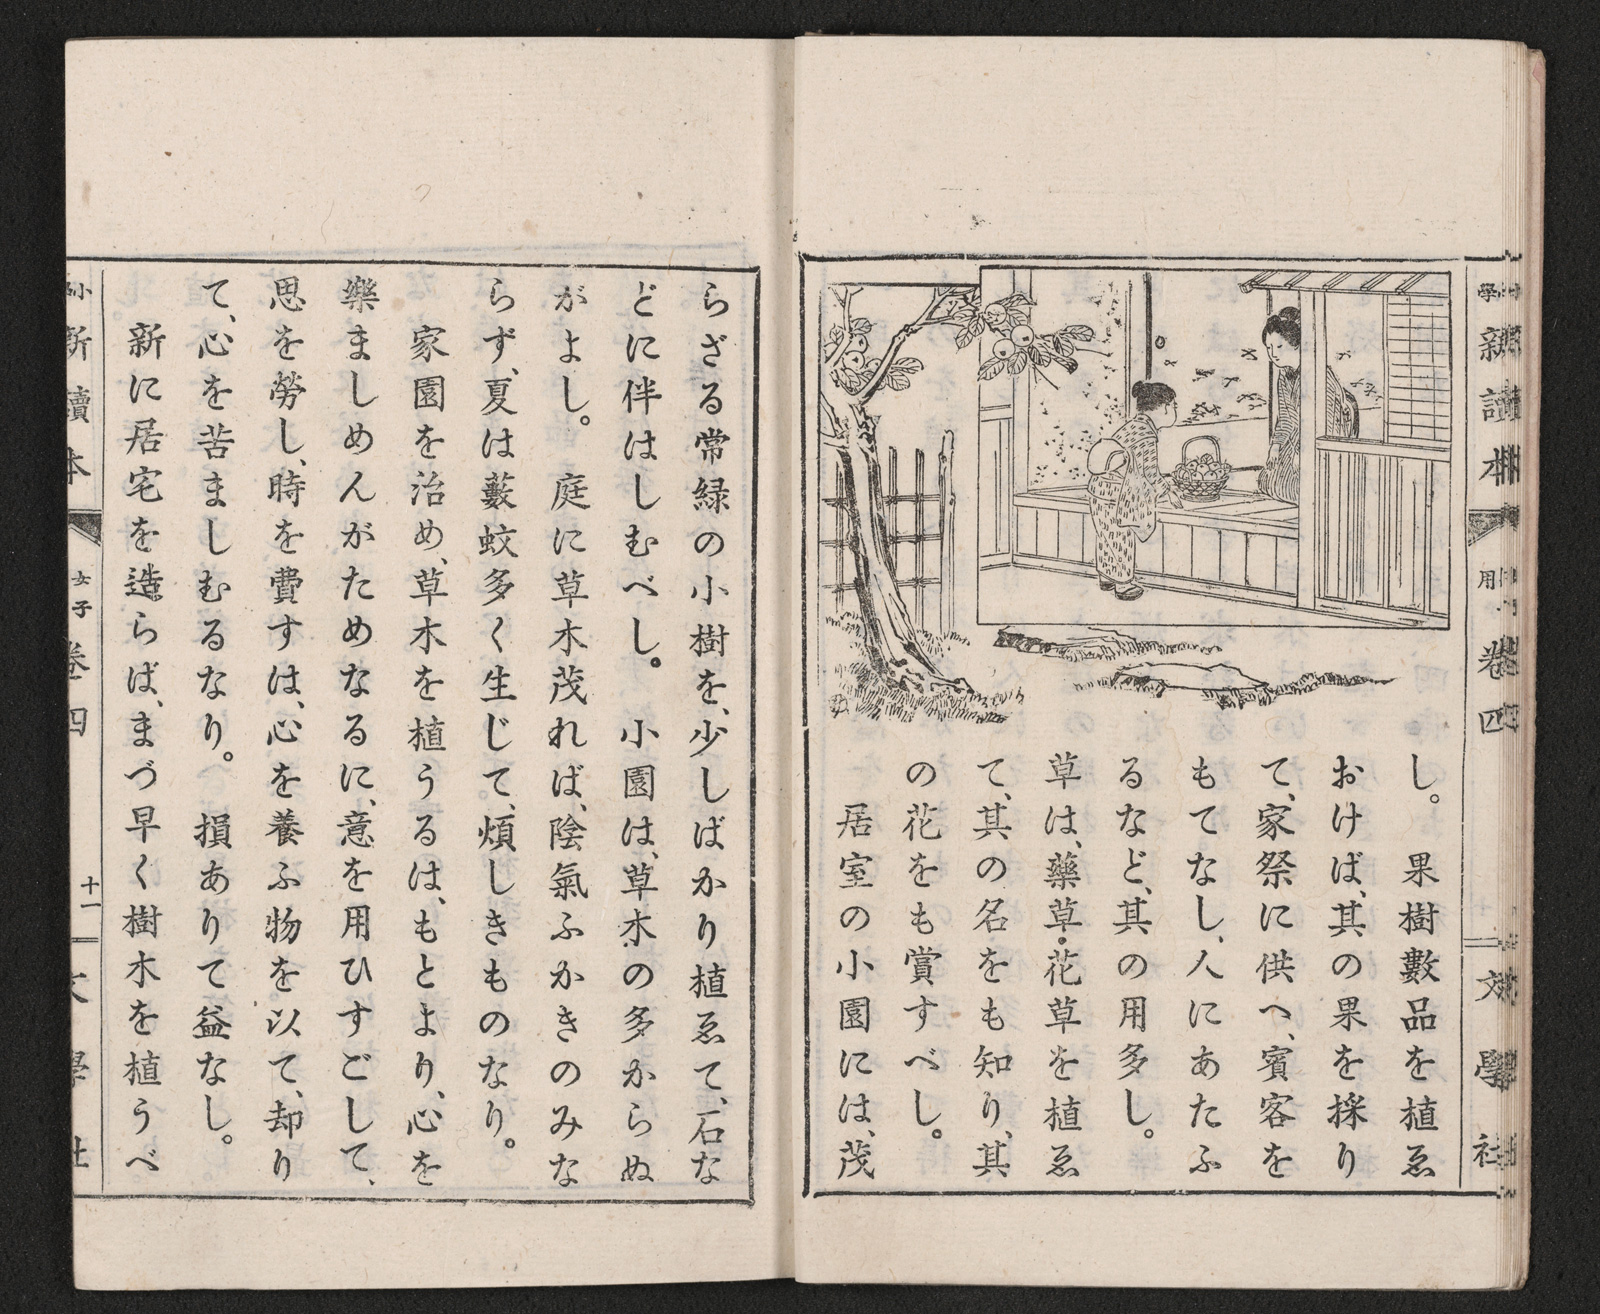 し。果樹數品を植ゑ
おけば、其の果を採り
て、家祭に供へ、賓客を
もてなし、人にあたふ
るなど、其の用多し。
草は、藥草・花草を植ゑ
て、其の名をも知り、其
の花をも賞すべし。
居室の小園には、茂
らざる常緑の小樹を、少しばかり植ゑて、石な
どに伴はしむべし。小園は、草木の多からぬ
がよし。庭に草木茂れば、陰氣ふかきのみな
らず、夏は藪蚊多く生じて、煩しきものなり。
家園を治め、草木を植うるは、もとより、心を
樂ましめんがためなるに、意を用ひすごして、
思を勞し、時を費すは、心を養ふ物を以て、却り
て、心を苦ましむるなり。損ありて益なし。
新に居宅を造らば、まづ早く樹木を植うべ
小學新讀本 女子 卷四 十一 文學社